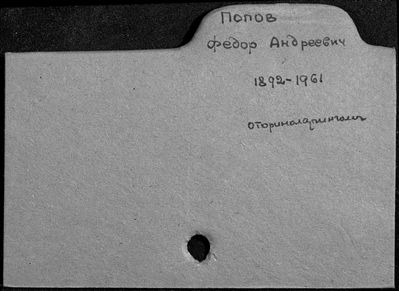 Попов
Федор Андреевич
1892-1961
оториноларинголог